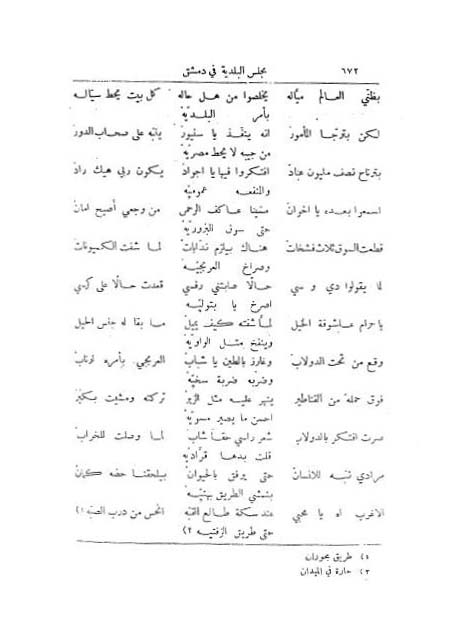 ٦٧٢ مجلس البلدية في دمشق
بظنّي العالم ميّاله يخلصوا من هل حاله كل بيت يحط سيّاله
بأمر البلديّة
لكن بترجّا المأمور انه ينفّذ يا سنيور ينبّه على صحاب الدور
من جيبه لا يحط مصريّه
بترتاح نصف مليون عباد افتكروا فيها يا اجواد يكون ربي هيك راد
والمنفعه عموميّه
اسمعوا بعده يا اخوان مشينا عاكف الرحمن من وجعي أصيح امان
حتى سوق البزوريّه
قطعت السوق ثلاث فشخات هناك بيلزم ندابات لما شفت الكميونات
وصراخ العربجيّه
لا يقولوا دي و سي حالاً صابتني رفسي قعدت حالاً على كرسي
اصرخ يا بتوليّه
يا حرام عاشوفة الخيل لما شفته كيف بميل ما بقا له جنس الحيل
وينفخ مثل الواويّه
وقع من تحت الدولاب وغارز بالطين يا شباب العربجي بأمره ارتاب
وضربه ضربة سخيّه
فوق حمله من القناطير ينهر عليه مثل الزير تركته ومشيت بكّير
احسن ما يصير مسويّه
صرت افتكر بالدولاب شعر راسي حقاً شاب لما وصلت للخراب
قلت بدها قرّاديّه
مرادي تنبّه للانسان حتى يرفق بالحيوان بيلحقنا حضه كمان
بنمشي الطريق بهنيّه
الاغرب اه يا محبي عند سكة طالع القبّه انحس من درب الصبّه ١)
حتى طريق الزفتيه ٢)
١) طريق بحوران
٢) حارة في الميدان